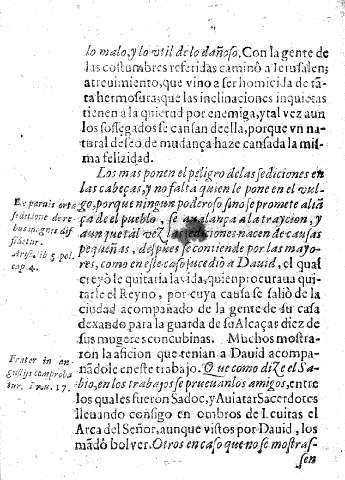 lo malo, y lo vtil de lo dañoso, Con la gente de
las costumbres referidas caminò a Ierusalen;
atreuimiento, que vino a ser homicida de tã
ta hermosura; que las inclinaciones inquietas
tienen à la quietud por enemiga, y tal vez aun
los sossegados se cansan de ella, porque vn na
tural deseo de mudança haze cansada la mis
ma felizidad.
Los mas ponen el peligro de las sediciones en
las cabeças, y no falta quien le pone en el vul
go, porque ningun poderoso sino se promete aliã
ça de el pueblo, se aualança a la traycion, y
aunque tal vez las sediciones nacen de causas
pequeñas, despues se contiende por las mayo
res, como en este caso sucediò a Dauid, el qual
creyò le quitaria la vida, quien procuraua qui
tarle el Reyno, por cuya causa se saliò de la
ciudad acompañado de la gente de su casa
dexando para la guarda de su Alcaçar diez de
sus mugeres concubinas. Muchos mostra-
ron la aficion que tenian a Dauid acompa-
ñandole en este trabajo. Que como dize el Sa-
bio, en los trabajos se prueuan los amigos, entre
los quales fueron Sadoc, y Auiatar Sacerdotes
lleuando consigo en ombros de Leuitas el
Arca del Señor, aunque vistos por Dauid, los
mãdò bolver. Otros en caso que no se mostras-
sen
Ex paruis orta
seditione de re-
bus magnis dis
sidetur.
Arist. lib 5 pol.
cap. 4.
Frater in an-
gustijs comproba
tur. Prou. 17.